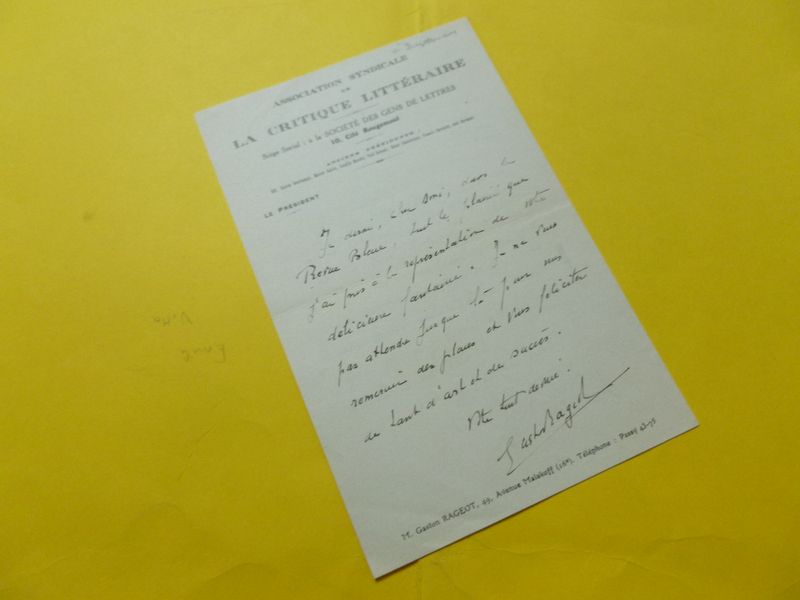 ASSOCIATION SYNDICALE
DE
LA CRITIQUE LITTÉRAIRE
Siège Social : à la SOCIÉTÉ DES GENS DE LETTRES
10, Cité Rougemont
ANCIENS PRÉSIDENTS
LE PRÉSIDENT
Je dirai, cher Ami, dans la
Revue Bleue, tout le plaisir que
j'ai pris à la représentation de votre
délicieuse fantaisie. Je ne veux
pas attendre jusque là pour vous
remercier des places et vous féliciter
de tant d'art et de succès.
Votre tout dévoué.
Gaston Rageot
M. Gaston RAGEOT, 49, Avenue Malakoff (16e). Téléphone : Passy 43-75